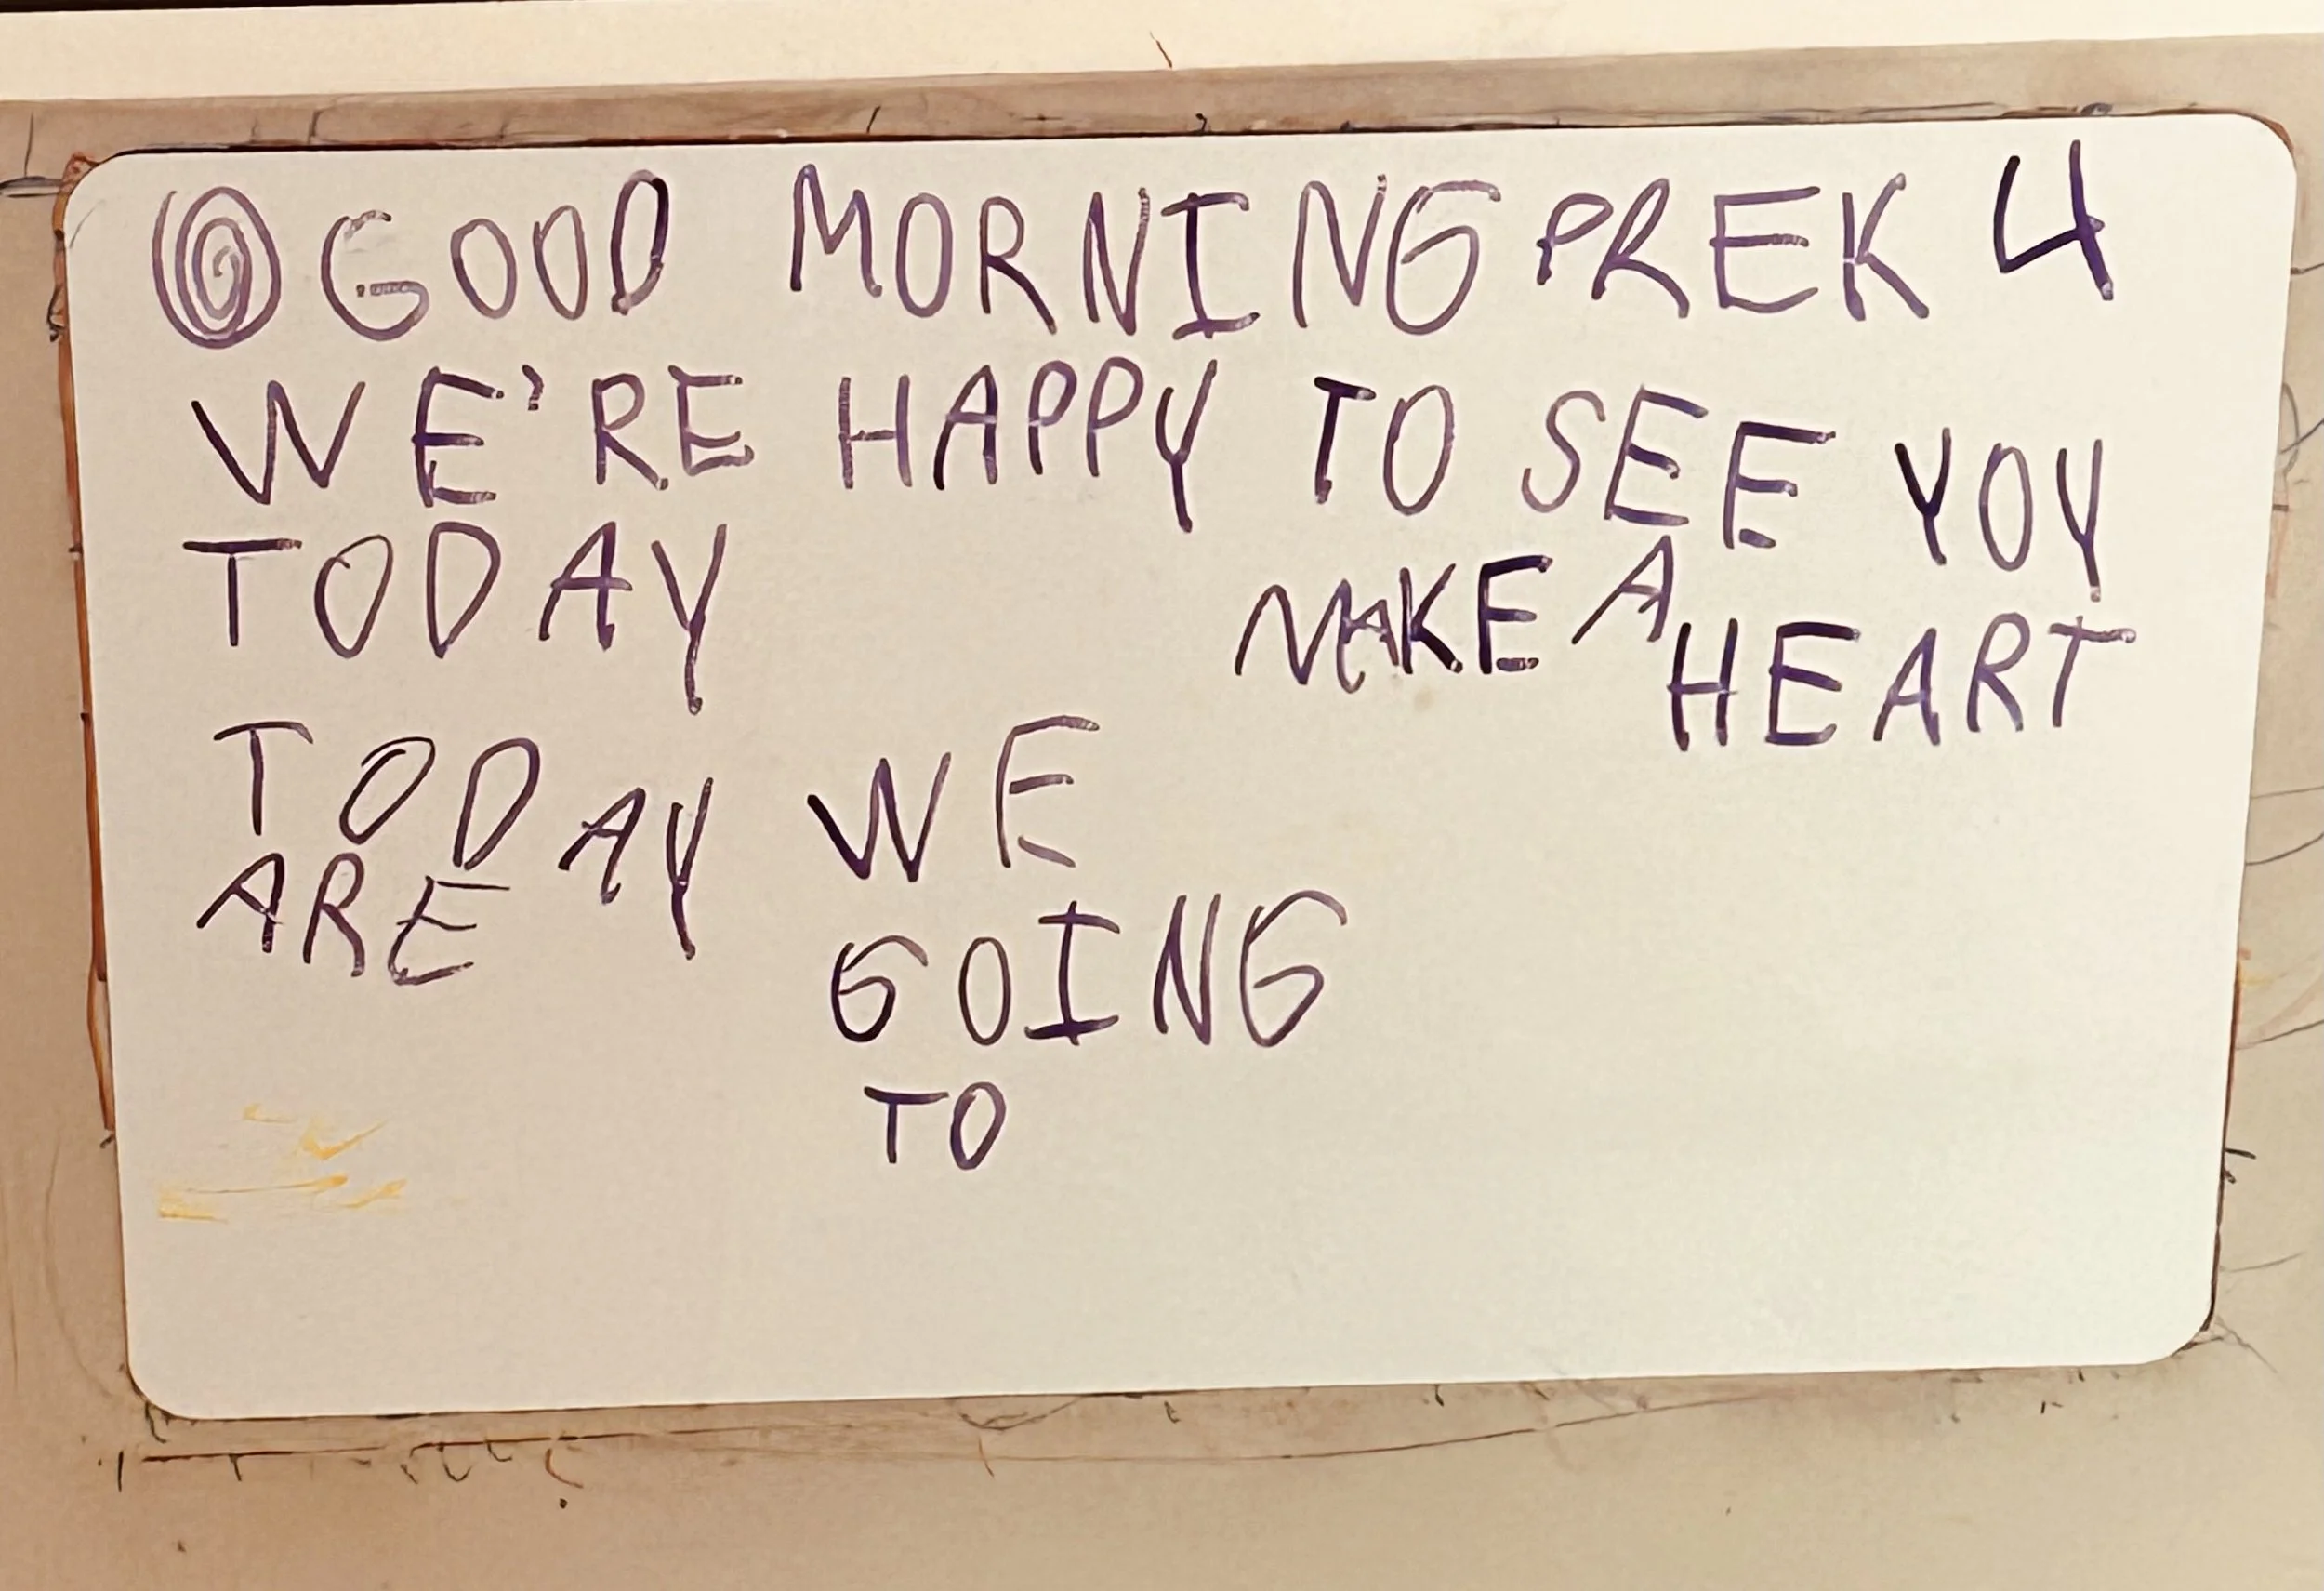 GOOD MORNING PREK 4
WE'RE HAPPY TO SEE YOY
TODAY
TODAY WE
ARE GOING
TO
MAKE A
HEART